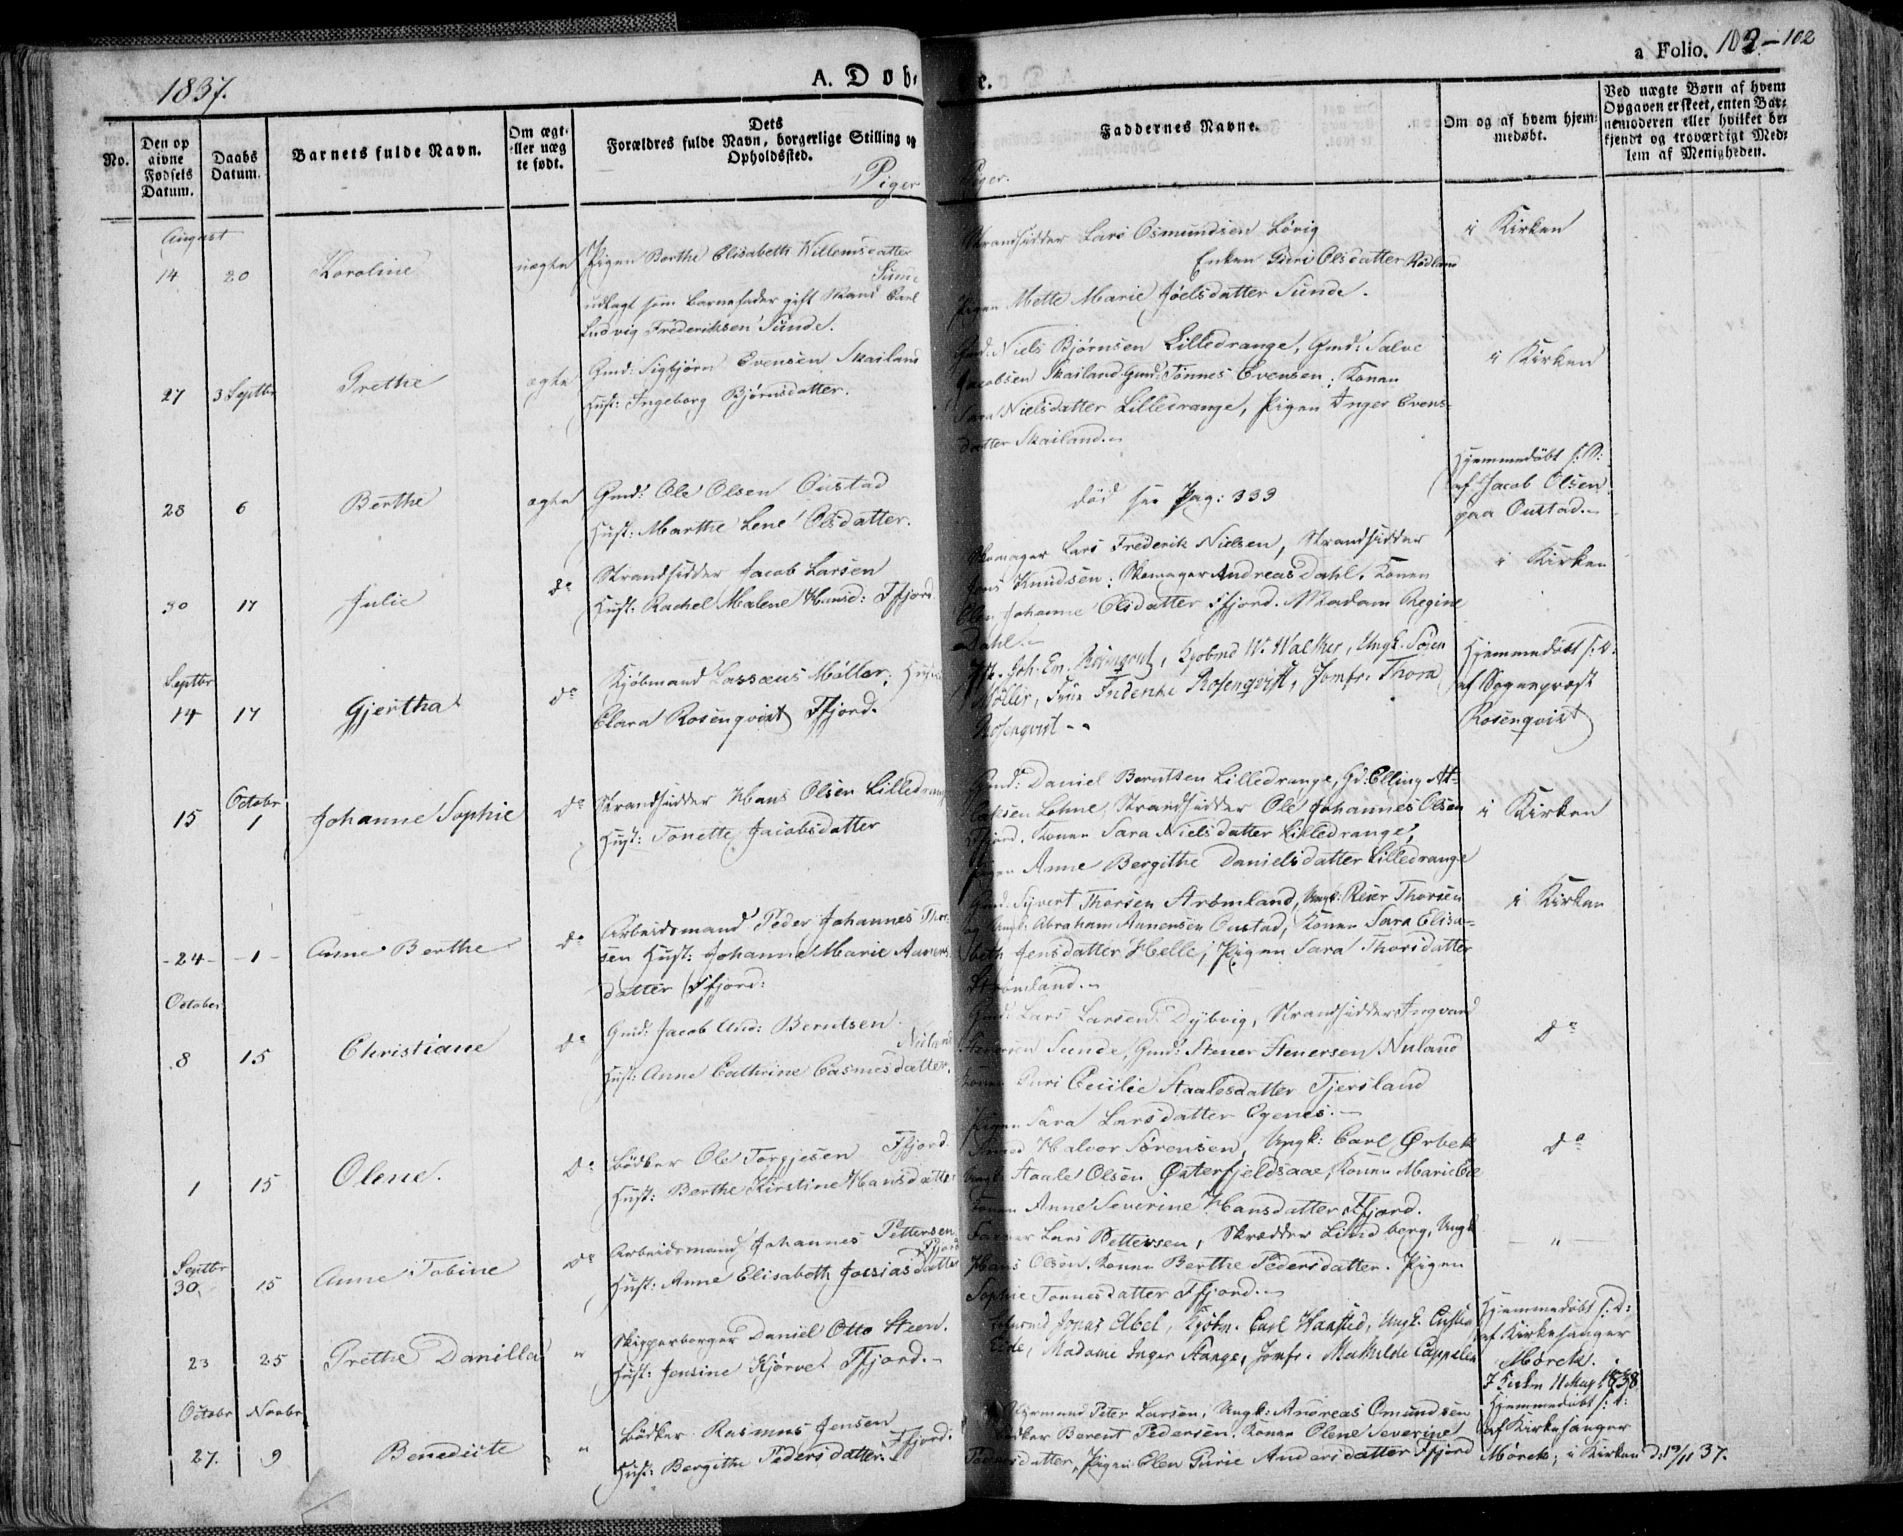 1837.
A. Døbte.
a Folio. 102-102
No.
Den op givne Fødsels Datum.
Daabs Datum.
Barnets fulde Navn.
Om ægte eller uægte født.
Dets
Forældres fulde Navn, borgerlige Stilling og
Opholdssted.
Faddernes Navne.
Om og af hvem hjemmedøbt.
Ved uægte Børn af hvem
Opgaven er skeet, enten Barnemoderen eller hvilket bekjendt og troværdigt Medlem af Menigheden.
Piger
Piger.
August
14 20 Karoline uægte Pigen Berthe Elisabeth Willemsdatter
Sunde
udlagt som barnefader gift Mand Carl
Ludvig Frederiksen Sunde.
Strandsidder Lars Osmundsen Løvig
Enken Guri Olsdatter Rødland
Pigen Mette Marie Joelsdatter Sunde.
i Kirken
27 3 Septbr Grethe ægte Gmd: Sigbjørn Evensen Skailand
Hust: Ingeborg Bjørnsdatter.
Gmd: Niels Bjørnsen Lilledrange, Gmd: Salve
Jacobsen Skailand, Gmd: Tønnes Evensen, Konen
Sara Nielsdatter Lilledrange, Pigen Inger Evens-
datter Skailand.
i Kirken
28 6 Berthe ægte Gmd: Ole Olsen Oustad
Hust: Marthe Lene Olsdatter.
død see Pag: 333
Hjemmedøbt s: D:
af Jacob Olsen
paa Oustad.
30 17 Julie do Strandsidder Jacob Larsen
Hust: Rachel Malene Hansd: Ffjord
Skomager Lars Frederik Nielsen, Strandsidder
Jens Knudsen, Skomager Andreas Dahl, Konen
Johanne Olsdatter Ffjord. Madam Regine
Dahl.
i Kirken
Septbr
14 17 Gjertha do Kjøbmand Lassæus Møller, Hust:
Clara Rosenqvist Ffjord.
Joh. Em. Rosenqvist, Kjøbmd W. Walker, Ungk. Søren
Møller, Frue Frederike Rosenqvist, Jomfr: Thora
Rosenqvist
Hjemmedøbt s: D:
af Sognepræst
Rosenqvist
15 Octobr 1 Johanne Sophie do Strandsidder Hans Olsen Lilledrange
Hust: Tonette Jacobsdatter
Gmd: Daniel Berntsen Lilledrange, Gd: Elling At-
laksen Løhne, Strandsidder Ole Johannes Olsen
Ffjord. Konen Sara Nielsdatter Lilledrange,
Pigen Anne Bergithe Danielsdatter Lilledrange
i Kirken
-24- -1- Anne Berthe do Arbeidsmand Peder Johannes Thor-
sen Hust: Johanne Marie Anners-
datter Ffjord:
Gmd: Sivert Thorsen Strømland, Ungk: Reier Thorsen
og Ungk: Abraham Annensen Oustad, Konen Sara Elisa-
beth Jensdatter Helle, Pigen Sara Thorsdatter
Strømland.
i Kirken
October
8 15 Christiane do Gmd: Jacob And: Berntsen
Nuland
Hust: Anne Cathrine Casmesdatter.
Gmd: Lars Larsen Dybvig, Strandsidder Ingvard
Stenersen Sunde, Gmd: Stener Stenersen Nuland
Konen Guri Cecilie Staalesdatter Tjersland
Pigen Sara Larsdatter Egenes.
do
1 15 Olene. do Bødker Ole Torgjesen Ffjord
Hust: Berthe Kirstine Hansdatter
Halvor Sørensen, Ungk: Carl Ørbek
Ungk: Staale Olsen Østerfjeldsaae, Konen Marie
Konen Anne Severine Hansdatter Ffjord.
do
Septbr
30 15 Anne Tobine do Arbeidsmand Johannes Pettersen
Ffjord
Hust: Anne Elisabeth Jossiasdatter
Farver Lars Pettersen, Skrædder Lindberg, Ungk
Hans Olsen, Konen Berthe Pedersdatter. Pigen
Sophie Tønnesdatter Ffjord.
"
23 25 Grethe Danilla " Skipperborger Daniel Otto Steen.
Hust: Jensine Kjørve Ffjord.
Jonas Abel, Kjøbm. Carl Hansted, Ungk.
Eide, Madame Inger Stange, Jomfr. Mathilde Cappelen
Hjemmedøbt s: D:
af Kirkesanger
Mørch.
I Kirken 11 May 1838
Octobr Novbr
27. 9 Benedicte " Bødker Rasmus Jensen
Hust: Bergithe Pedersdatter Ffjord.
Peter Larsen, Ungk: Andreas Omundsen
Bødker Berent Pedersen, Konen Olene Severine
Pedersdatter, Pigen Elen Gurie Andersdatter Ffjord
Hjemmedøbt s: D:
af Kirkesanger
Mørch, i Kirken d: 19/11 37.